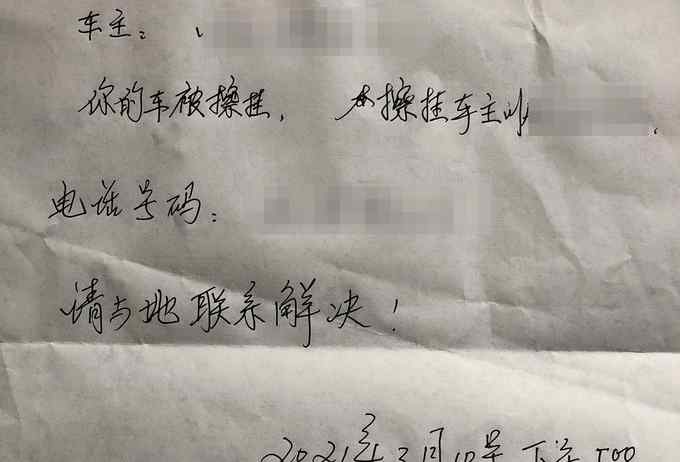 车主:
你的车被擦挂, 擦挂车主
电话号码:
请与她联系解决!
2021年2月10号下午